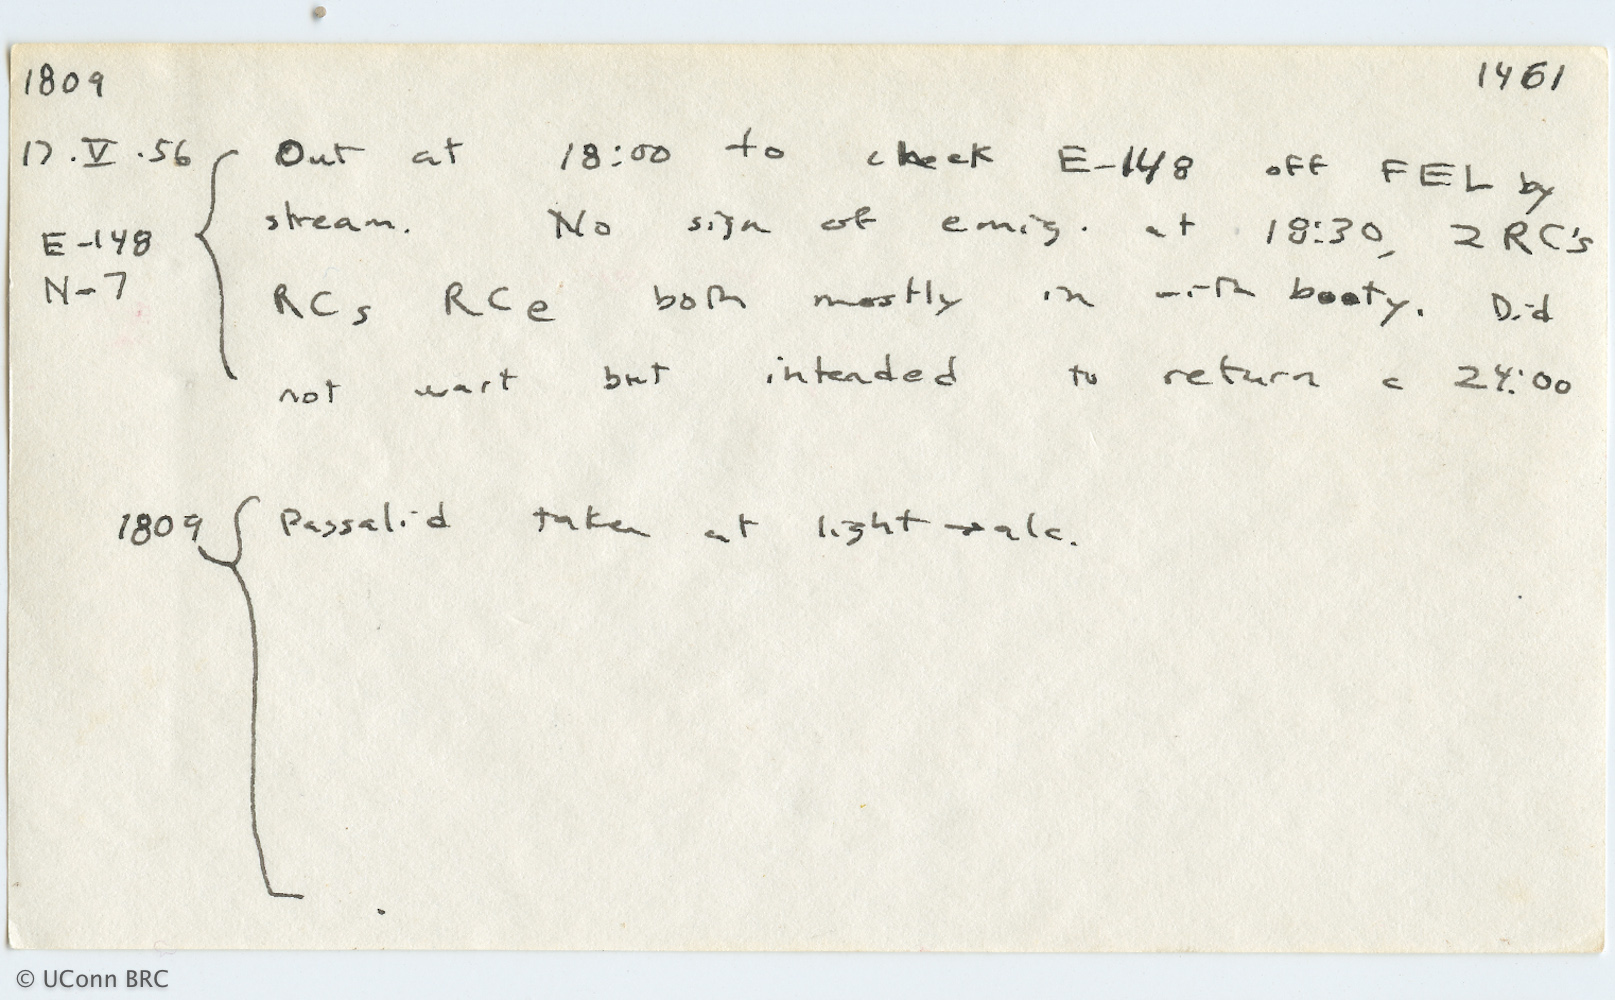 1809 1461
17.V.56 Out at 18:00 to check E-148 off FEL by
stream. No sign of emig. at 18:30, 2 RC's
E-148
N-7 RCs RCe both mostly in with booty. Did
not wait but intended to return c 24:00
1809 Passalid taken at light → alc.
© UConn BRC